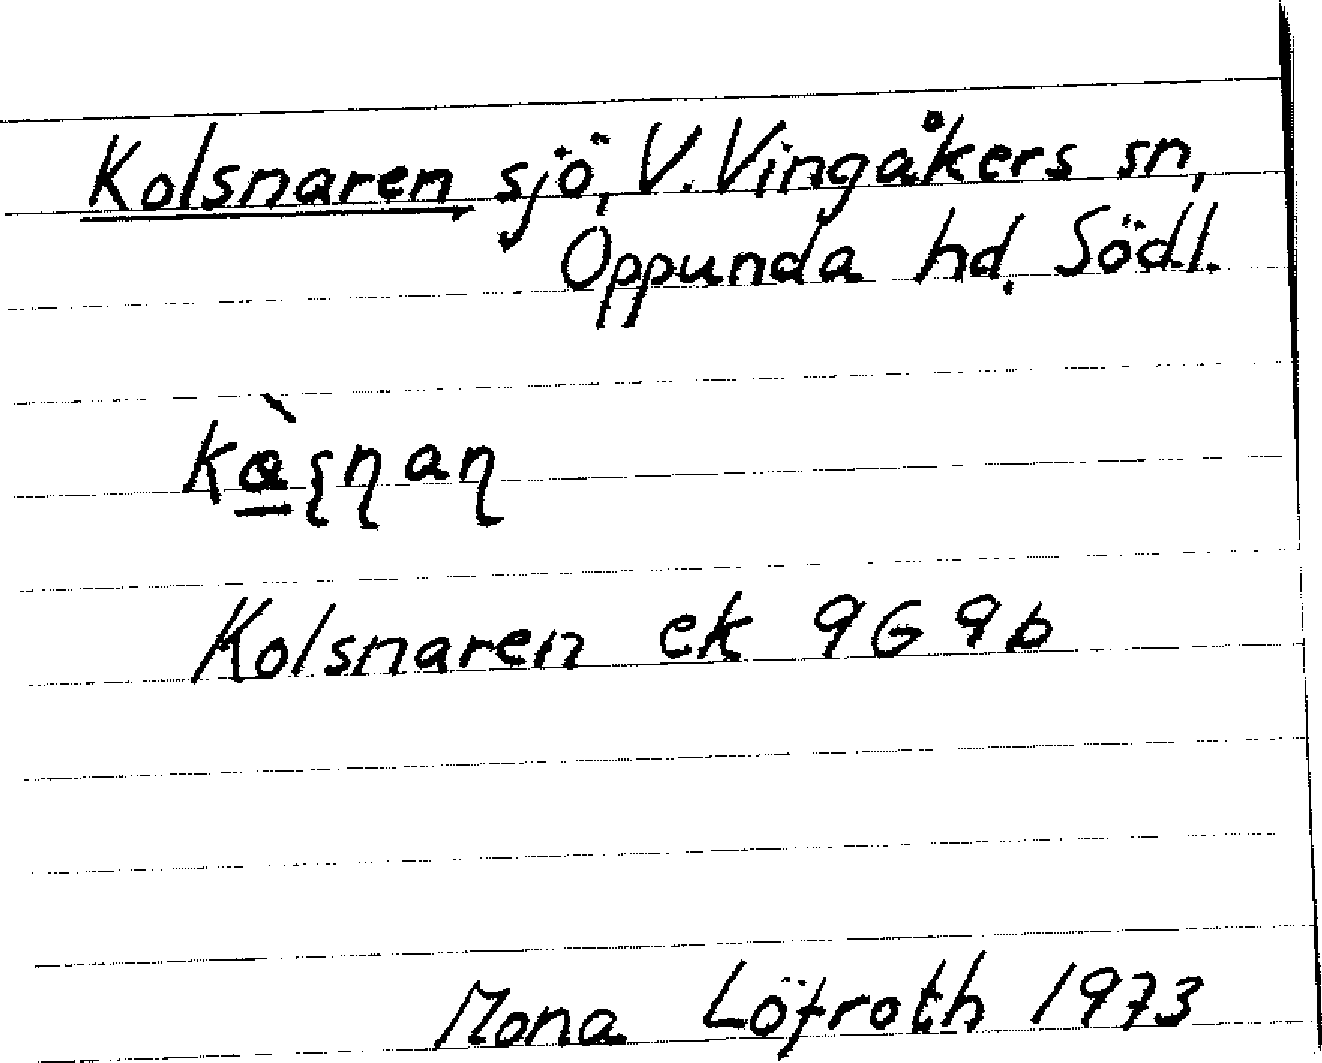 Kolsnaren, sjö, V. Vingåkers sn,
Oppunda hd. Södl.
kàṣṇaṇ
Kolsnaren ek 9G9b
Mona Löfroth 1973